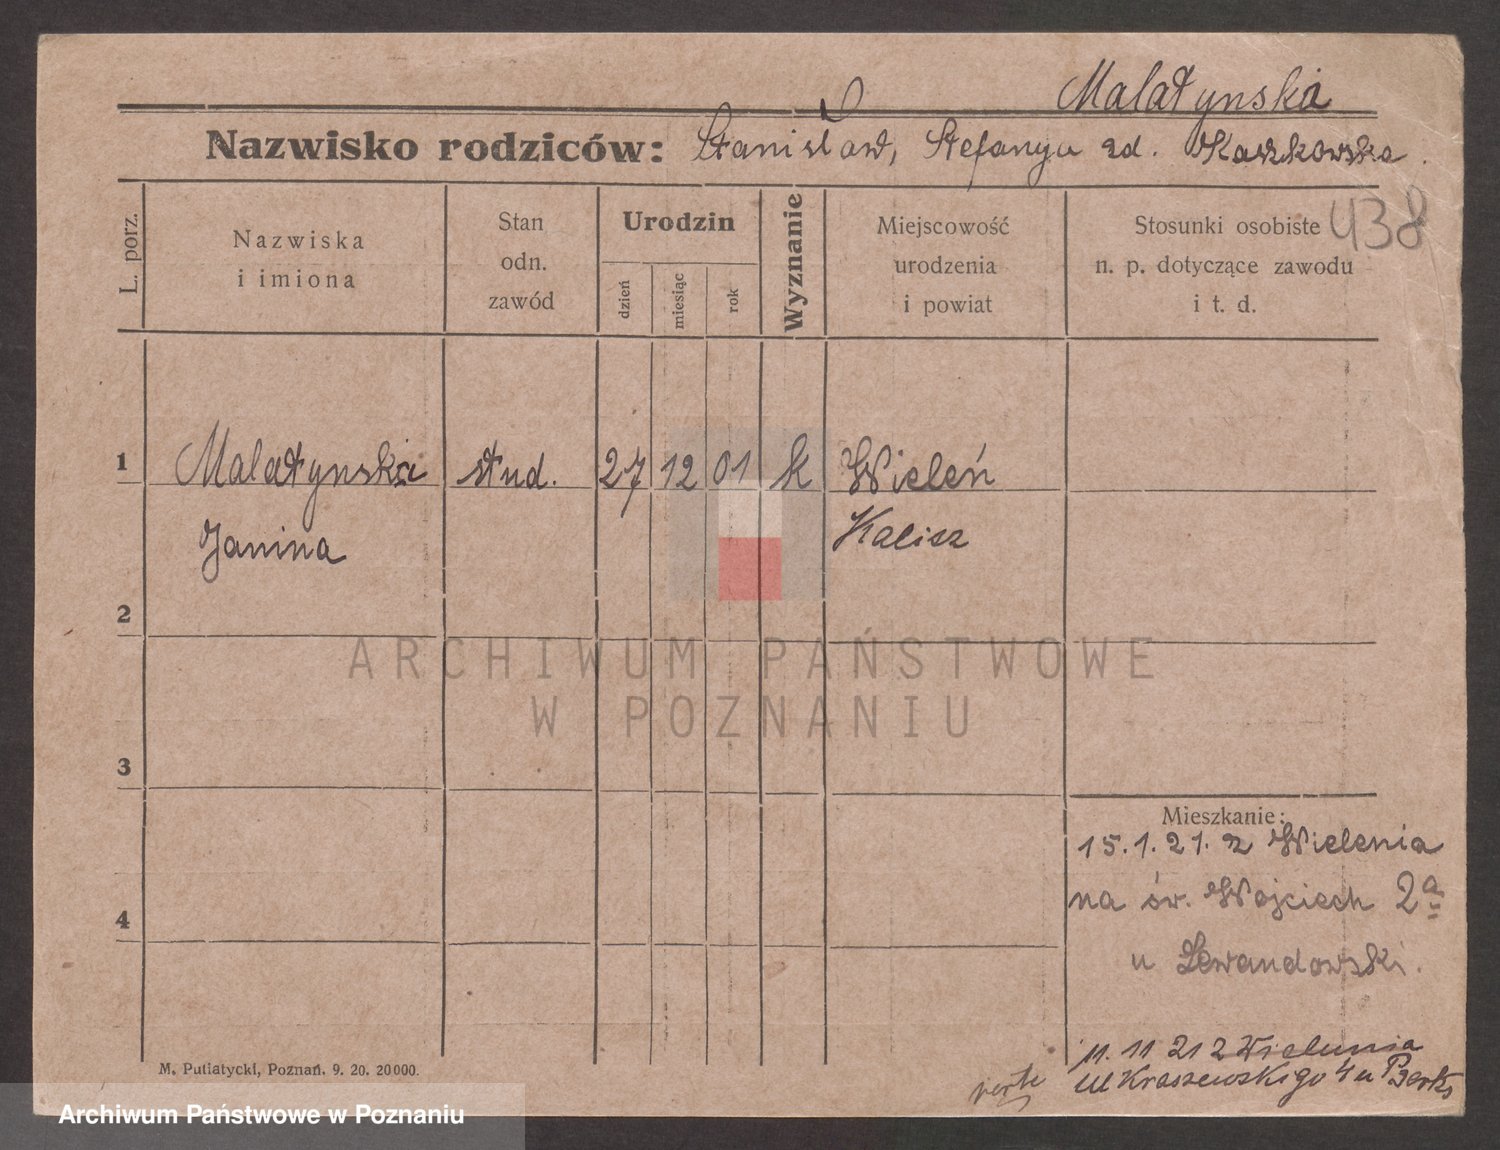 Malatynska
Nazwisko rodziców: Stanisław, Stefanya zd. Kaszkowska.
438
L. porz.
Nazwiska
i imiona
Stan
odn.
zawód
Urodzin
dzień
miesiąc
rok
Wyznanie
Miejscowość
urodzenia
i powiat
Stosunki osobiste
n. p. dotyczące zawodu
i t. d.
1 Malatynska stud. 27 12 01 k Wieleń
Janina Kalisz
2
ARCHIWUM PAŃSTWOWE
W POZNANIU
3
4
Mieszkanie:
15.1.21. z Wielenia
na św. Wojciech 2a
u Lewandowski.
11. 11 21 z Wielunia
ul Kraszewskiego 4 u
verte
M. Putiatycki, Poznań. 9. 20. 20000.
Archiwum Państwowe w Poznaniu